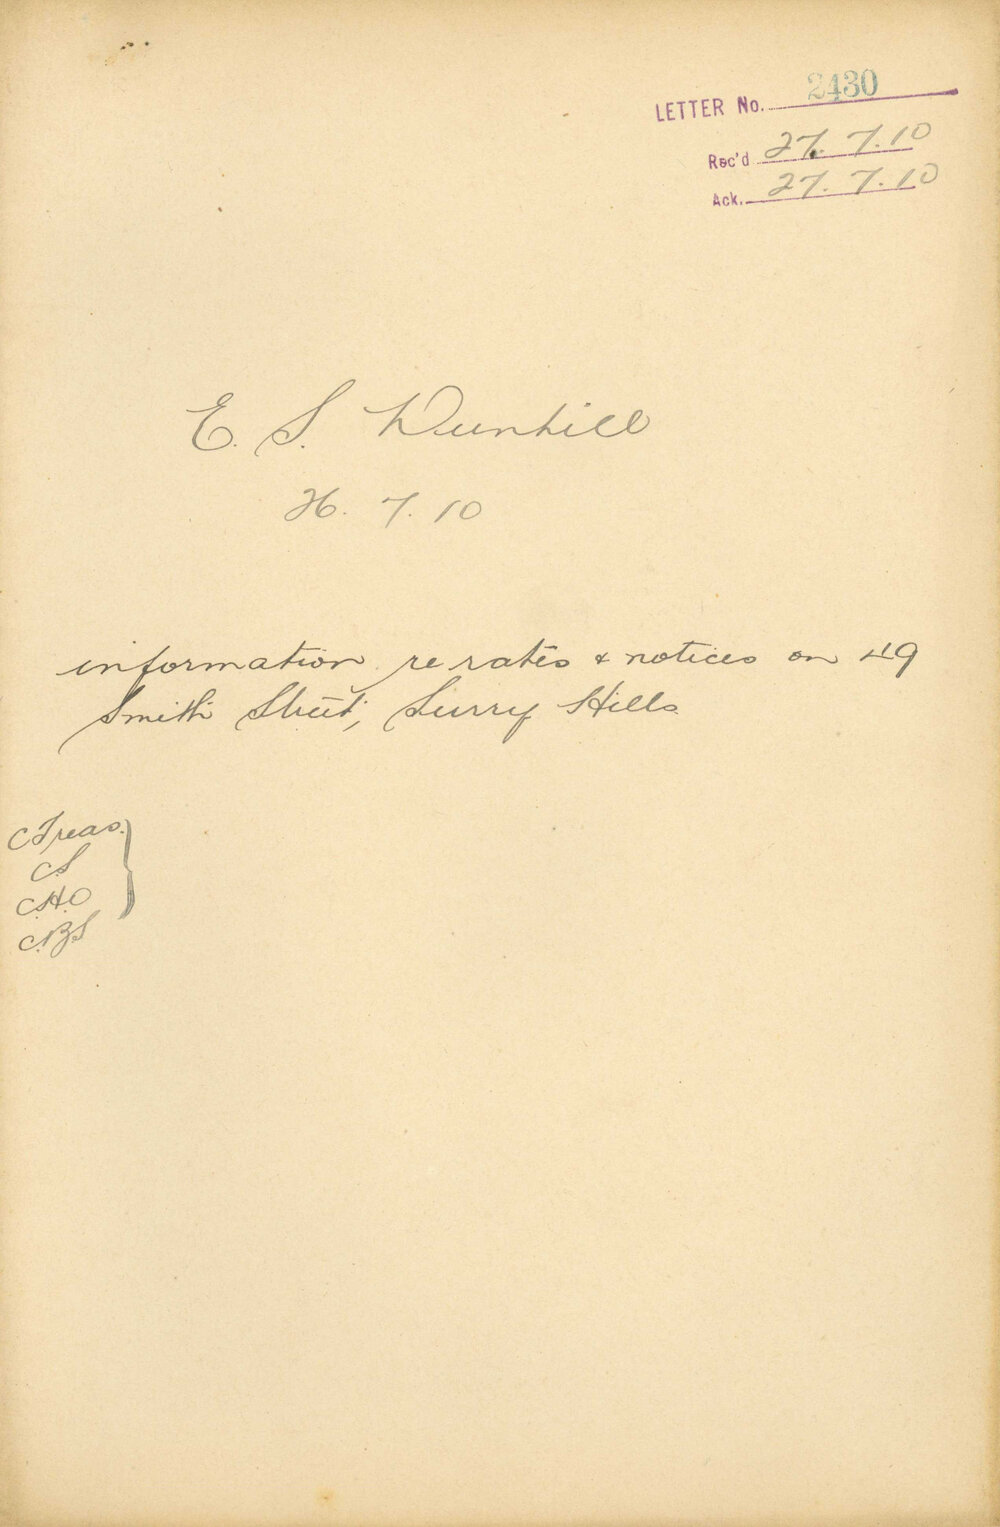 LETTER No. 2430
Rec'd 27. 7. 10
Ack. 27. 7. 10
E. S. Dunhill
26. 7. 10
information re rates & notices on 49
Smith Street, Surry Hills
C Treas.
C.S
C.H.O
C.B.S